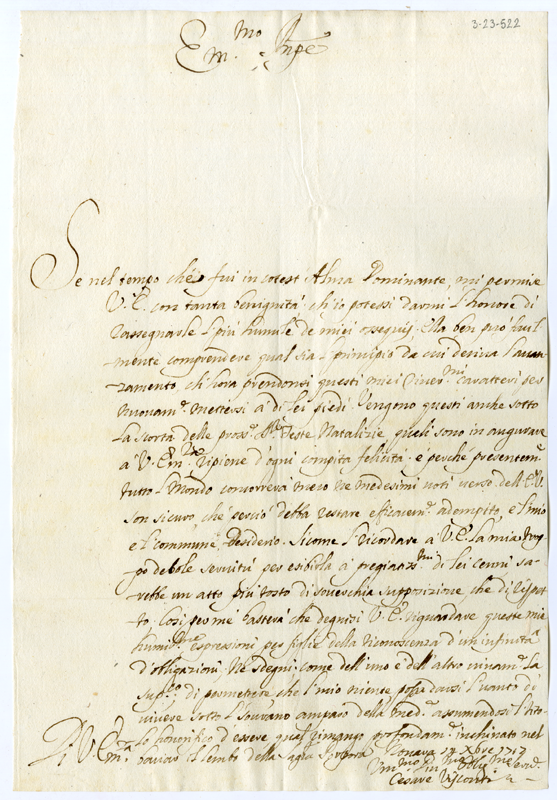 3-23-522
Em.mo Pnpe
Se nel tempo che fui in cotest' Alma Dominante, mi permise
V. E. con tanta benignità ch'io potessi darmi l'honore di
rassegnarle l più humile de miei ossequij. Ella ben può facil-
mente comprendere qual sia l principio da cui deriva l'avan-
zamento, ch'hora prendonsi questi miei river.mi caratteri per
nuovam.e mettersi à di lei piedi. Vengono questi anche sotto
la scorta delle pross.e S.te Feste Natalizie, quali sono in augurare
à V. Em.za ripiene d'ogni compita felicità: e perché presentem.e
tutto l Mondo concorrerà meco ne medesimi voti verso dell'E. V.
son sicuro, che perciò debba restare efficacem.e adempito, e l mio
e l commune desiderio. Sicome l ricordare à V. E. la mia trop-
po debole servitù per esibirla à pregiatiss.mi di lei cenni sa-
rebbe un atto più tosto di soverchia supposizione, che di rispet-
to, Così per me basterà che degnisi V. E. riguardare queste mie
humil.me espressioni per figlie della riconoscenza d'un'infinità
d'obligazioni, Nè sdegni, come dell'uno e dell'altro vivam.e la
supp.co di permettere che l mio niente possa darsi l vanto di
vivere sotto l sovrano amparo della med.a assumendosi l tito-
lo honorifico d'essere qual rimango profondam.e inchinato nel
baciar il lembo della sagra Porpora
Di V. Em.za
Novara 14 Xbre 1713
Um.mo Dev.mo Oblig.mo Serv.
Cesare Visconti